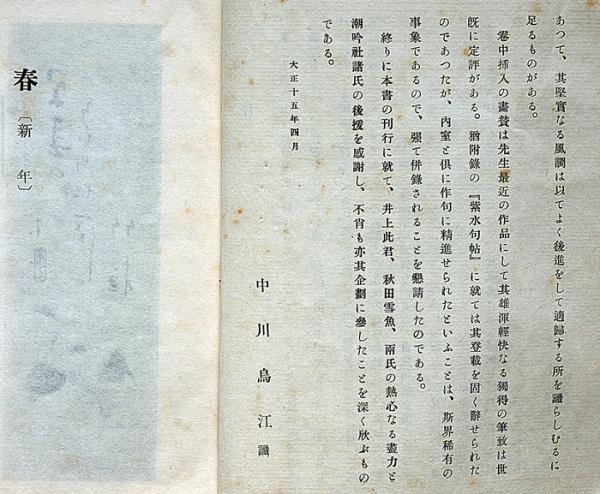 あつて、其堅實なる風調は以てよく後進をして適歸する所を識らしむるに
足るものがある。
卷中挿入の畵賛は先生最近の作品にして其雄渾輕快なる獨得の筆致は世
旣に定評がある。猶附錄の『紫水句帖』に就ては其登載を固く辭せられた
のであつたが、內室と俱に作句に精進せられたといふことは、斯界稀有の
事象であるので、强て併錄されることを懇請したのである。
終りに本書の刊行に就て、井上此君、秋田雪魚、兩氏の熱心なる盡力と
潮吟社諸氏の後援を感謝し、不肖も亦其企劃に參したことを深く欣ぶもの
である。
大正十五年四月
中川鳥江識
春
〔新年〕